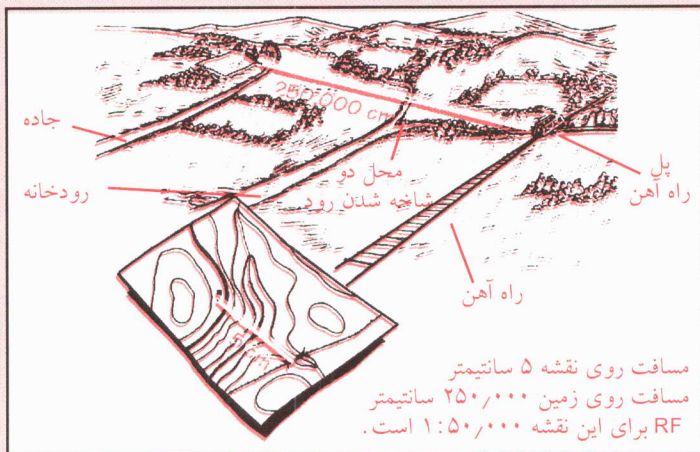 250,000 cm
جاده
محل دو
شاخه شدن رود
پل
راه آهن
رودخانه
راه آهن
5 cm
مسافت روی نقشه ۵ سانتیمتر
مسافت روی زمین ۲۵۰٫۰۰۰ سانتیمتر
RF برای این نقشه ۱:۵۰٫۰۰۰ است.